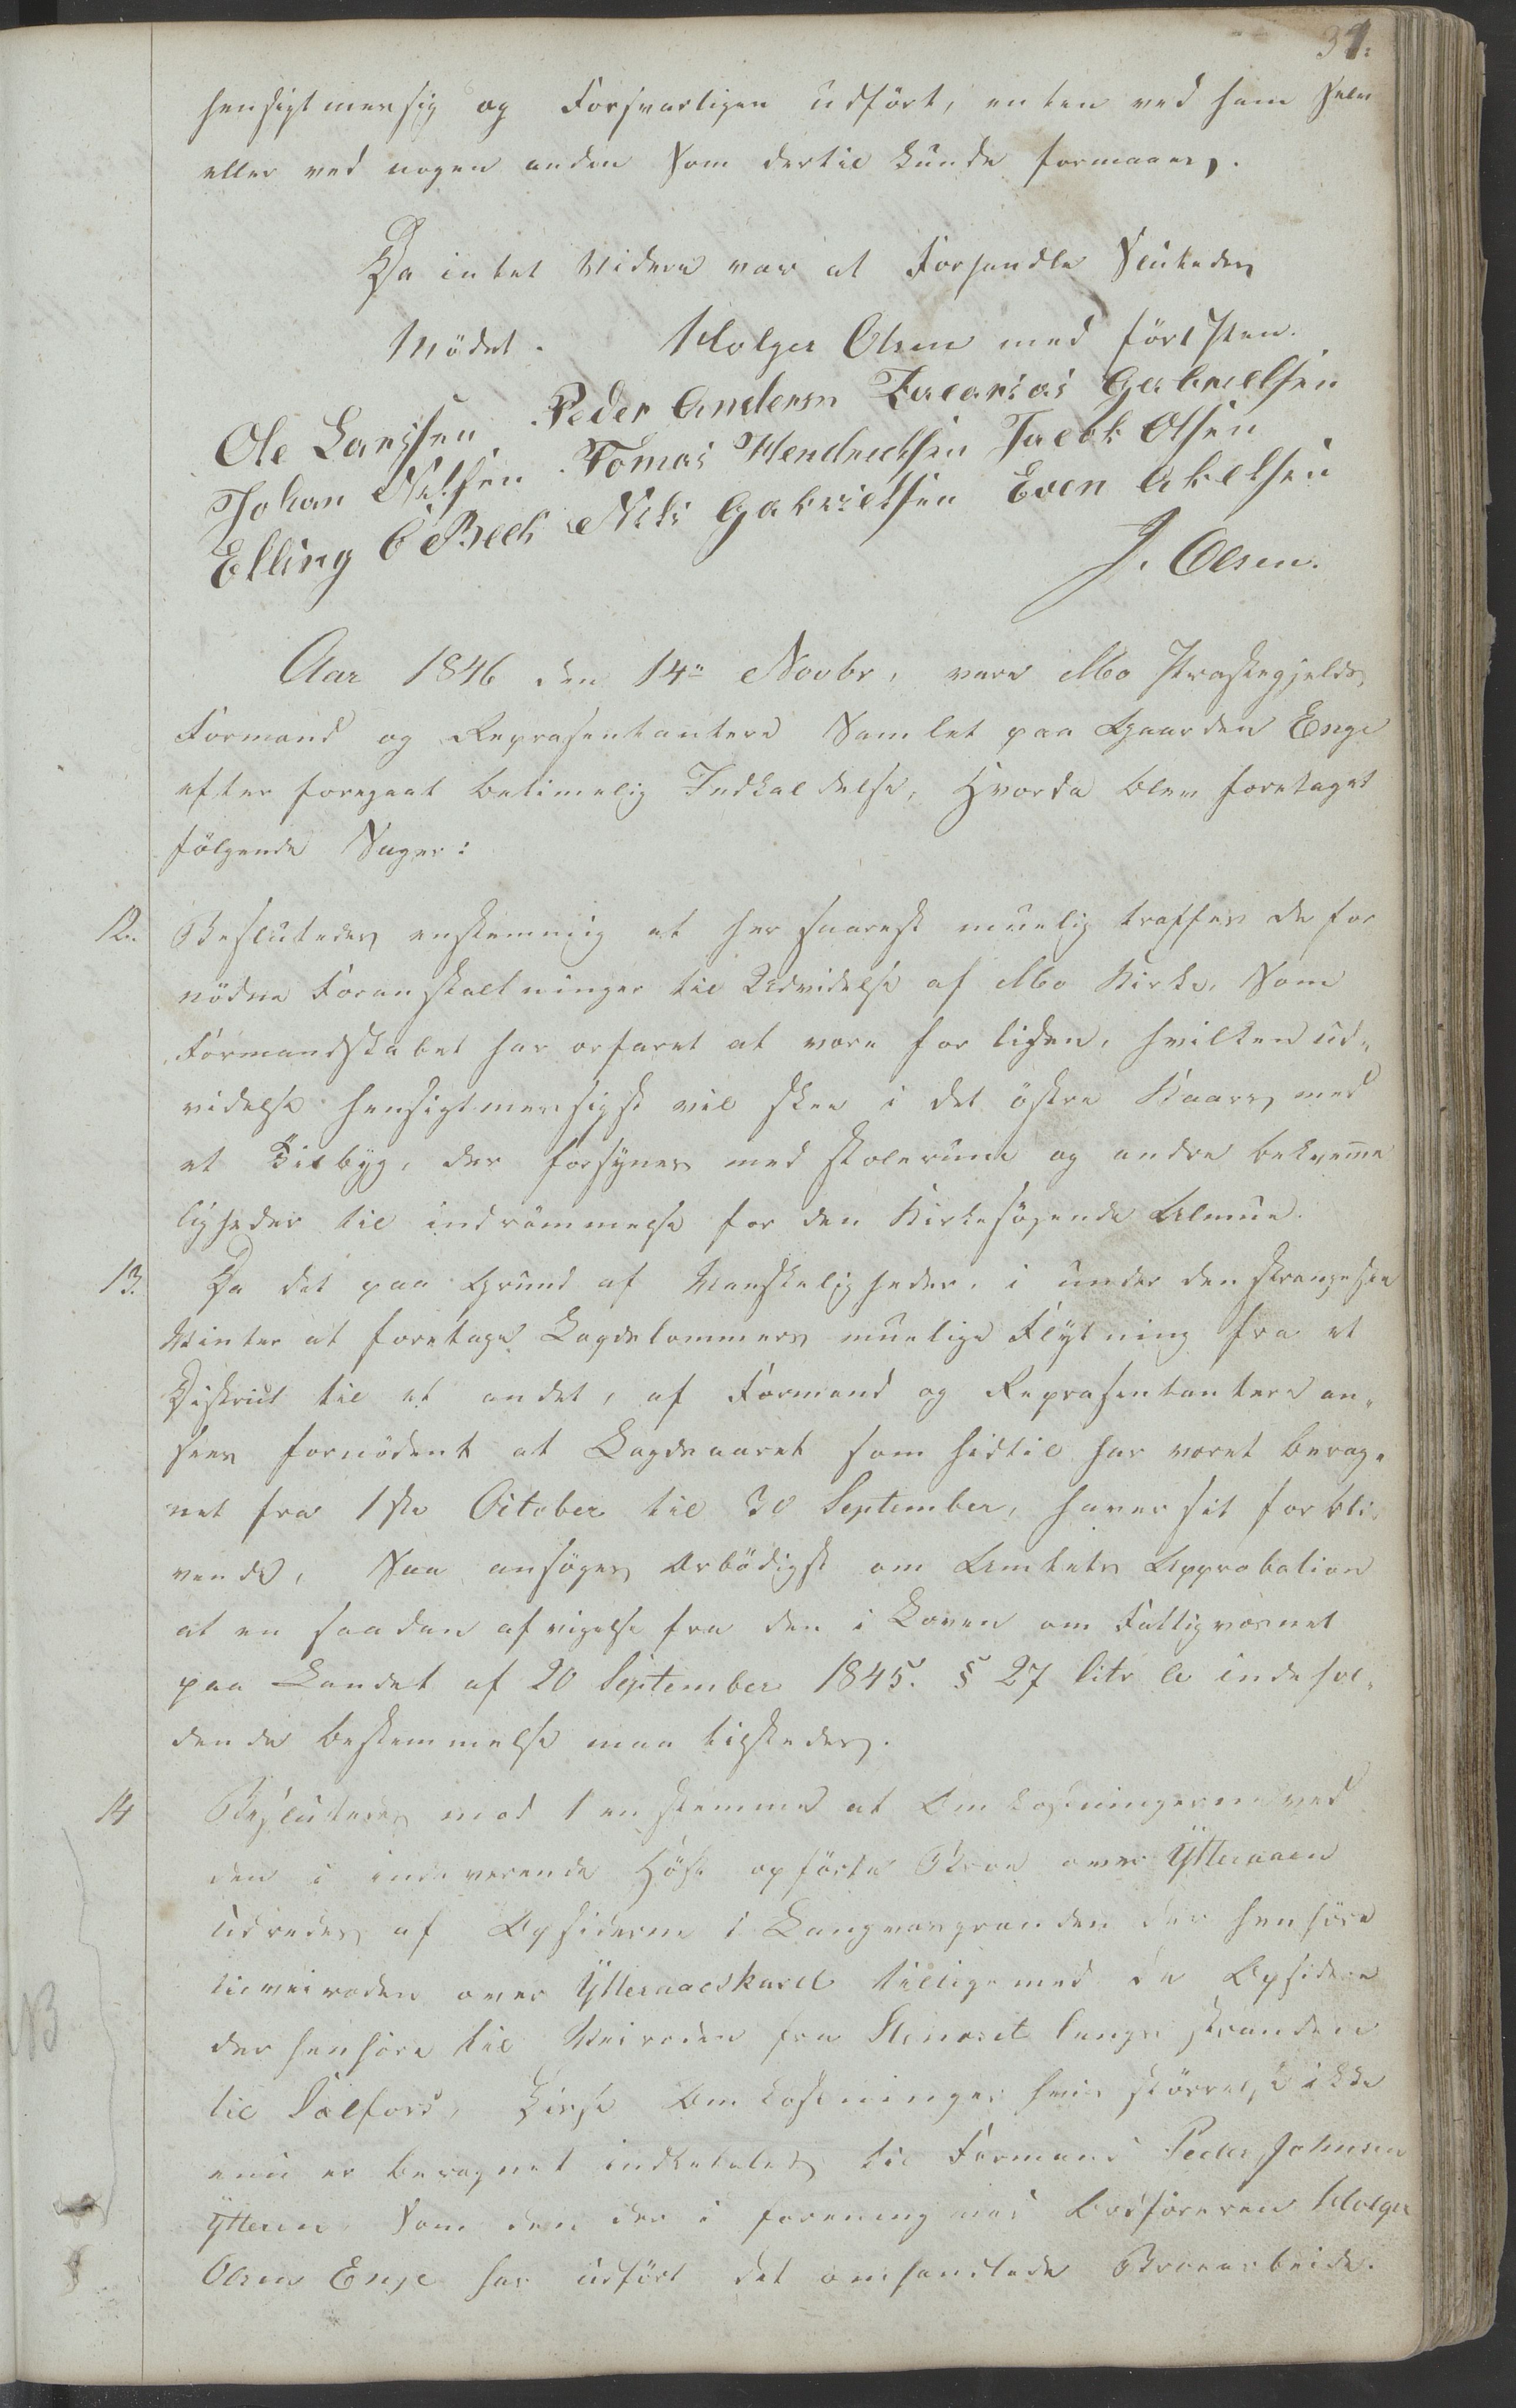 31.
hensigtmersig og Forsvarligen udført, enten ved ham selv
eller ved nogen anden som dertil kunde formaaes.
Da intet videre var at Forhandle Slutedes
Mødet. Holger Olsen med ført Pen.
Ole Larssen Peder Andersn Zacarias Gabrielsen
Johan Nilsen Tomas Hendrichsen Jacob Olsen
Elling O Bech Nils Gabrielsen Even Akelsen
J. Olsen.
Aar 1846 den 14de Novbr, vare Mo Præstegjelds
Formænd og Repræsentantere Samlet paa Gaarden Enge
efter foregaat betimelig Indkaldelse, Hvorda blev foretaget
følgende Sager:
12. Besluttedes enstemmig at her snarest muelig træffes de for
nødne Foranstaltninger til Udvidelse af Mo Kirke, Som
Formandskabet har erfaret at være for liden, hvilken ud-
videlse hensigtmersigst vil skee i det østre Kaars, med
et Tilbyg, der forsynes med stolerum og andre bekvemme
ligheder til indrømmelse for den Kirkesøgende Almue.
13. Da det paa Grund af Vanskeligheder, i under den strængeste
Vinter at foretage Lægdslemmers muelige Flytning fra et
District til et andet, af Formænd og Repræsentantere an-
sees fornødent at Lægdsaaret som hidtil har været bereg-
net fra 1ste October til 30 September, haver sit forbli-
vende, Saa ansøges Ærbødigst om Amtets Approbation
at en saadan afvigelse fra den i Loven om Fattigvæsnet
paa Landet af 20 September 1845. § 27 litr a indehol-
dende bestemmelse maa tilstedes.
14 Besluttedes mod 1 en stemme at Omkostningerne ved
den i indeverende Høst opførte Broe over Ytteraaen
udredes af Opsiderne i Langvasgrenden der henhøre
til veiroden over Ytteraaeskaret tilligemed de Opsidere
der henhøre til Veiroden fra Stenoret langs stranden
til Sælfors, Disse Omkostninger hvis størrelse ikke
enu er beregnet indbetales til Formand Peder Johnsen
Ytteren, Som den der i forening med Ordføreren Holger
Olsen Enge har udført det omhandlede Broearbeide.
NB